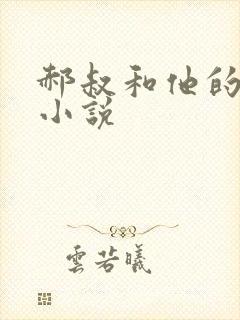 郝叔和他的
小説
雲若曦